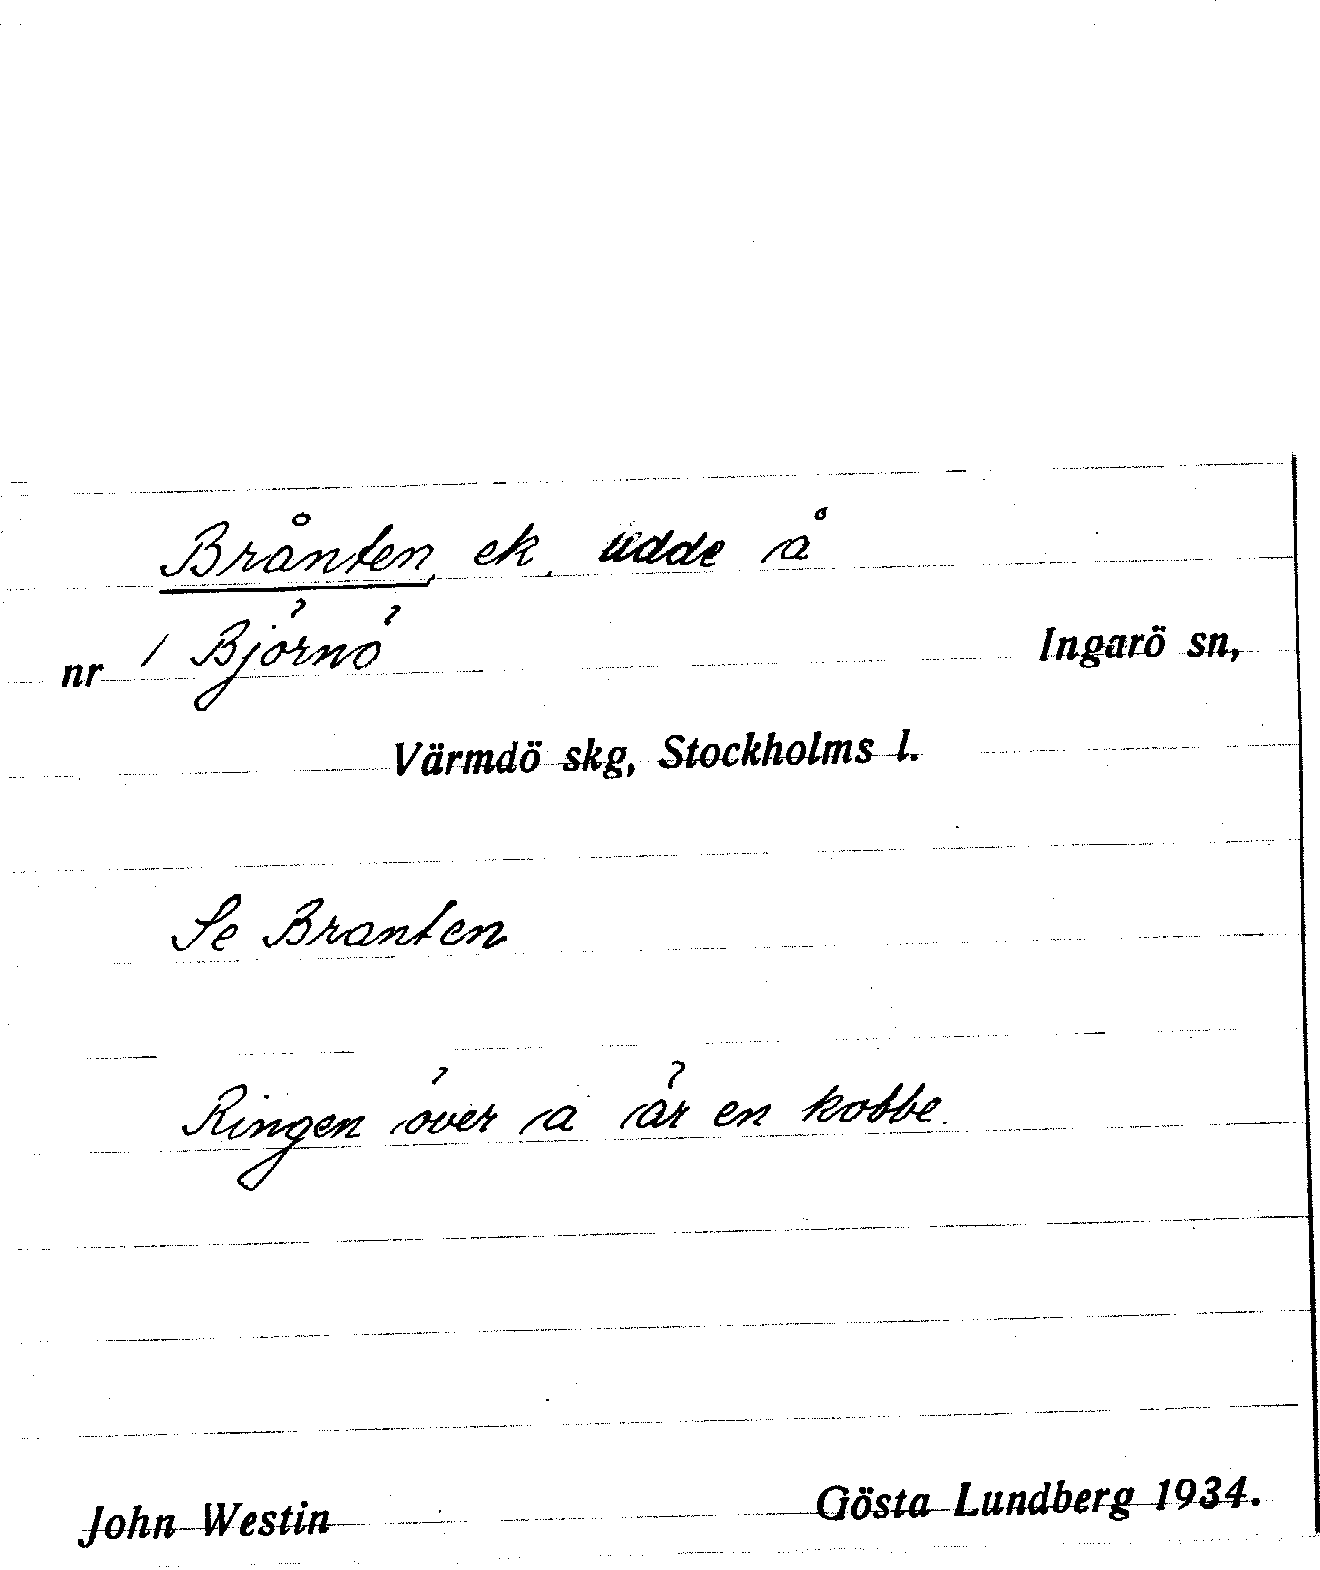 Brånten, ek. udde å
nr 1 Björnö Ingarö sn,
Värmdö skg, Stockholms l.
Se Branten
Ringen över a är en kobbe.
John Westin Gösta Lundberg 1934.